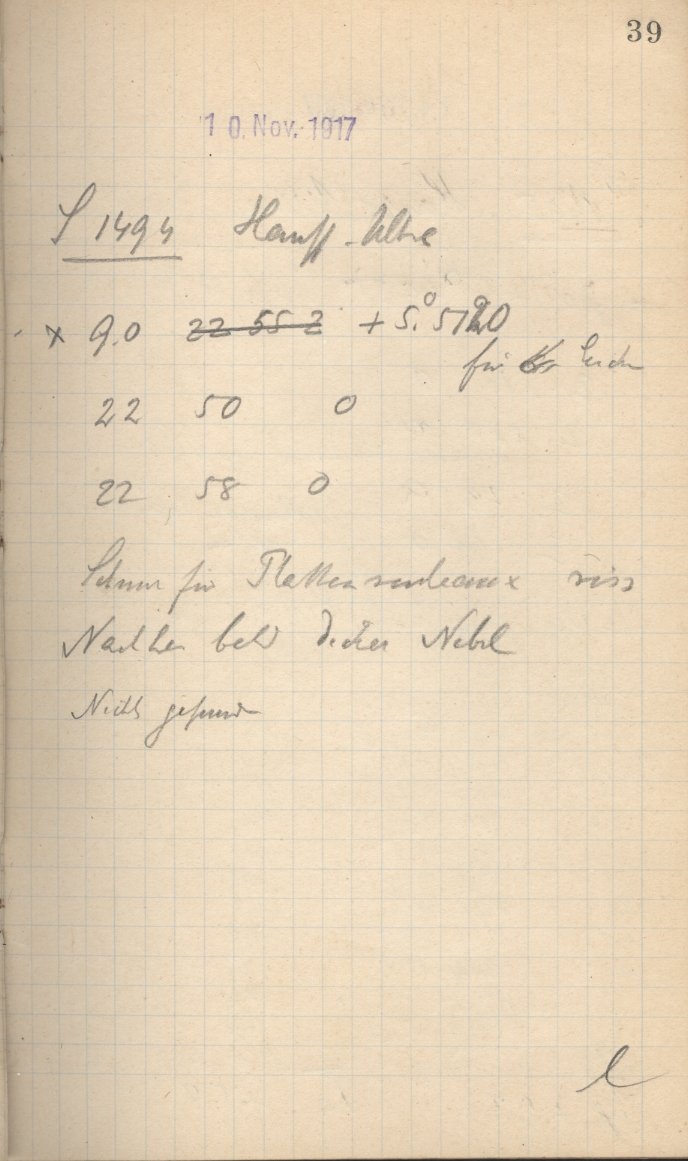 39
10. Nov. 1917
S 1494 Hauff-Ultra
x 9.0 22 55 2 + 5.° 5120
für
22 50 0
22 58 0
Schnur für Plattenrouleaux riss
Nachher bald dicker Nebel
Nichts gefunden